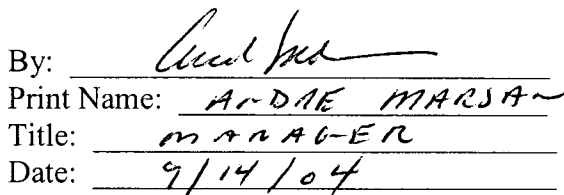 By:
Print Name: ANDRE MARSAN
Title: MANAGER
Date: 9/14/04